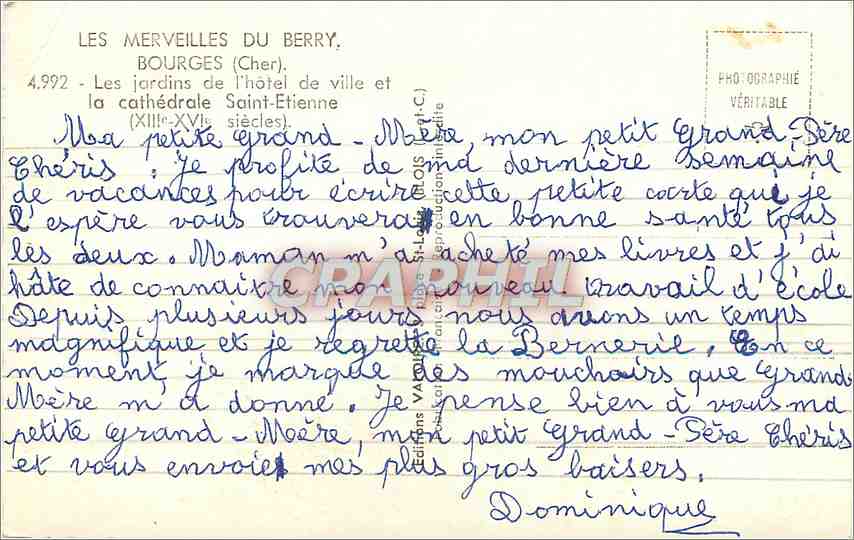 LES MERVEILLES DU BERRY.
BOURGES (Cher).
4.992 - Les jardins de l'hôtel de ville et
la cathédrale Saint-Etienne
(XIIIe-XVIe siècles).
PHOTOGRAPHIE
VÉRITABLE
Ma petite Grand-Mère, mon petit Grand-Père
Chéris. Je profite de ma dernière semaine
de vacances pour écrire cette petite carte qui je
l'espère vous trouvera en bonne santé tous
les deux. Maman m'a acheté mes livres et j'ai
hâte de connaitre mon nouveau travail d'école
Depuis plusieurs jours nous avons un temps
magnifique et je regrette la Bernerie. En ce
moment je marque des mouchoirs que Grand-
Mère m'a donné. Je pense bien à vous ma
petite Grand-Mère, mon petit Grand-Père Chéris
et vous envoie mes plus gros baisers.
Dominique
CPAPHIL